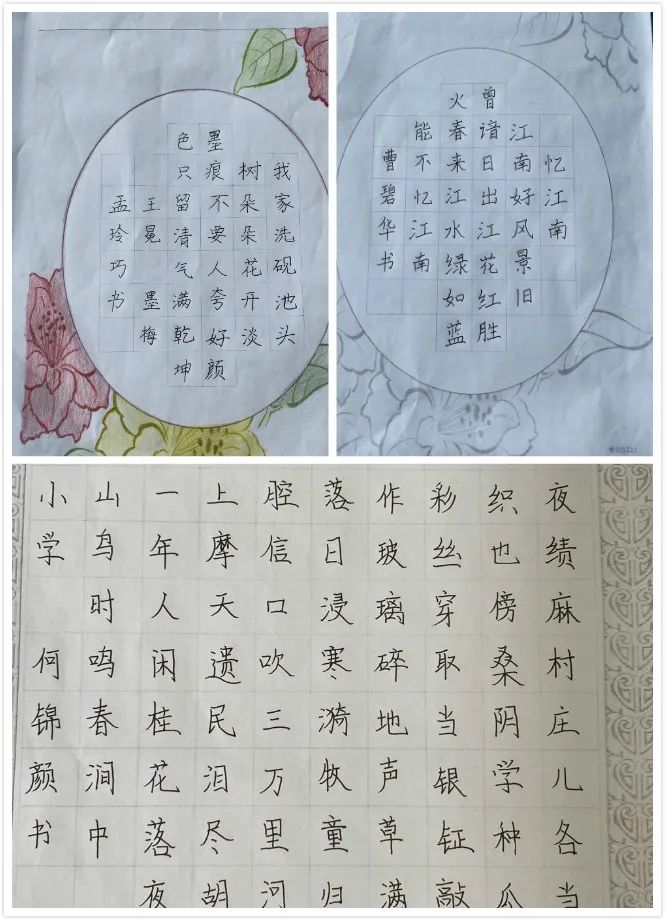 我家洗砚池头
树朵朵花开淡
墨痕不要人夸好颜
色只留清气满乾坤
王冕 墨梅
孟玲巧书
忆江南
江南好风景旧
曾谙日出江花红胜
火春来江水绿如蓝
能不忆江南
曹碧华书
夜绩麻村庄儿各当
织也傍桑阴学种瓜
彩丝穿取当银钲敲
作玻璃碎地声草满
落日浸寒漪牧童归
腔信口吹三万里河
上摩天遗民泪尽胡
一年人闲桂花落夜
山鸟时鸣春涧中
小学 何锦颜书